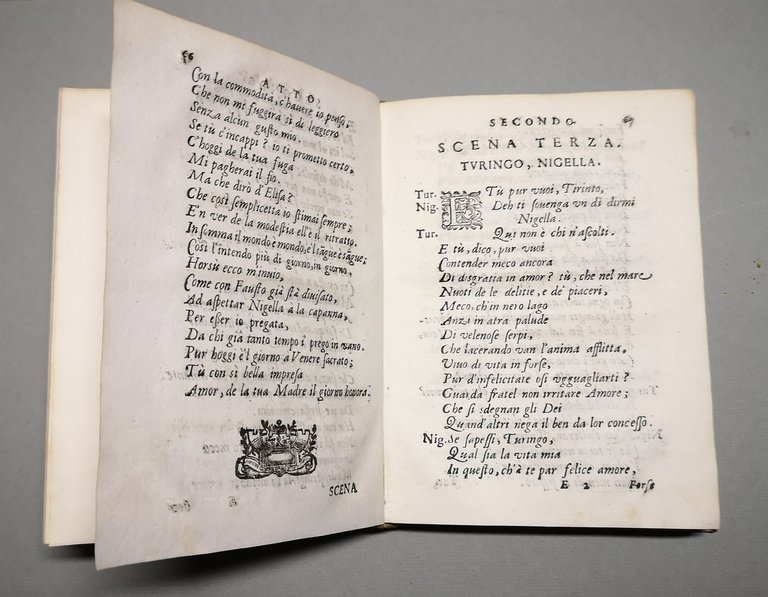 66
ATTO
Con la commodità, c'hauere io penso,
Che non mi fuggirà sì di leggiero
Senza alcun gusto mio.
Se tù c'incappi? io ti prometto certo,
C'hoggi de la tua fuga
Mi pagherai il fio.
Ma che dirò d'Elisa?
Che così semplicetta io stimai sempre;
E'n ver de la modestia ell'è il ritratto.
In somma il mondo è mondo, e'l sāgue è sāgue;
Così l'intendo più di giorno, in giorno,
Horsù ecco m'inuio,
Come con Fausto già stà diuisato,
Ad aspettar Nigella à la capanna,
Per esser io pregata,
Da chi già tanto tempo i prego in vano.
Pur hoggi è'l giorno a Venere sacrato;
Tù con sì bella impresa
Amor, de la tua Madre il giorno honora.
SCENA
SECONDO. 67
SCENA TERZA.
TVRINGO, NIGELLA.
Tur. E Tù pur vuoi, Tirinto,
Nig. Deh ti souenga vn dì dirmi
Nigella.
Tur. Qui non è chi n'ascolti.
E tù, dico, pur vuoi
Contender meco ancora
Di disgratia in amor? tù, che nel mare
Nuoti de le delitie, e de' piaceri,
Meco, ch'in nero lago
Anzi in atra palude
Di velenose serpi,
Che lacerando van l'anima afflitta,
Viuo di vita in forse,
Pur d'infelicitate osi vgguagliarti?
Guarda fratel non irritare Amore;
Che si sdegnan gli Dei
Quand'altri nega il ben da lor concesso.
Nig. Se sapessi, Turingo,
Qual sia la vita mia
In questo, ch'à te par felice amore,
E 2 Forse